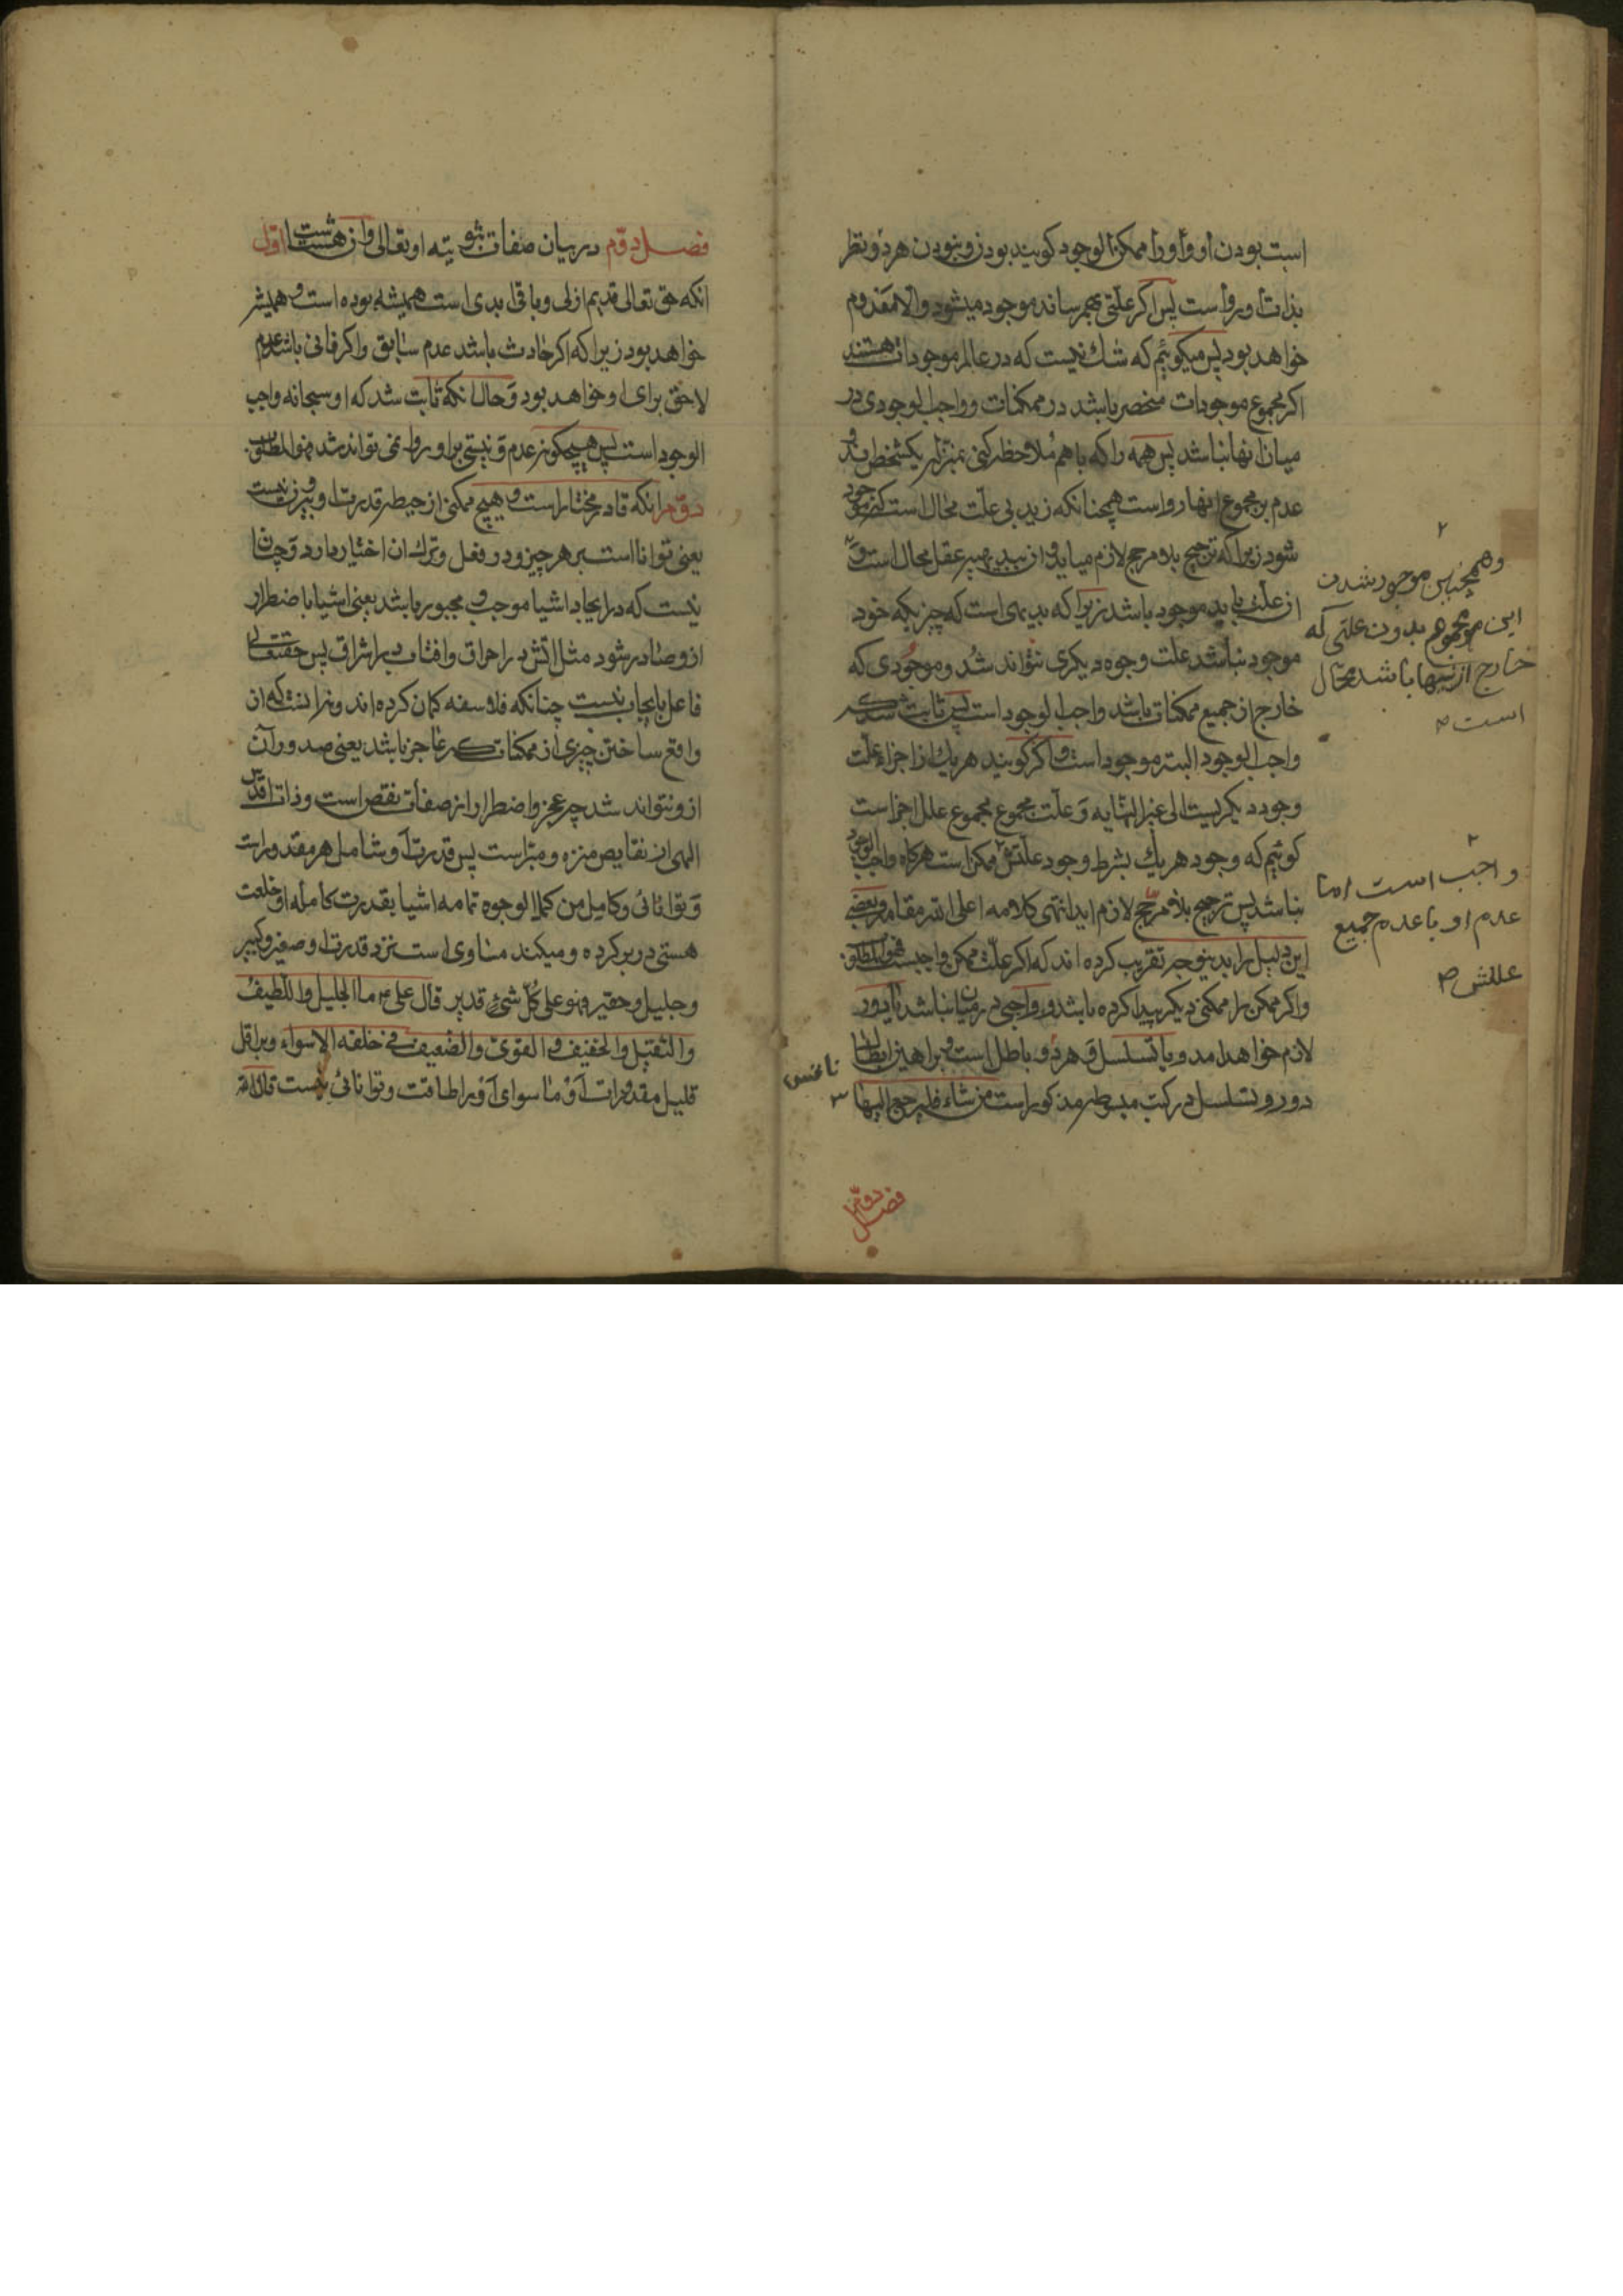 است بودن او و او را ممکن الوجود کویند بودن و نبودن هر دو نظر
بذات او رواست پس اکر علتی بهم رساند موجود میشود و الا معدوم
خواهد بود پس میکوئیم که شك نیست که در عالم موجودات هستند
اکر مجموع موجودات منحصر باشد در ممکنات و واجب الوجودی در
میان انها نباشد پس همه را که با هم ملاحظه کنی بمنزله یکشخص‌اند و
عدم بر مجموع انها رواست همچنانکه زید بی علت محال است که موجود
شود زیرا که ترجیح بلا مرجح لازم میاید و ان ببدیهه عقل محال است و
ان علت باید موجود باشد زیرا که بدیهی است که چیزیکه خود
موجود نباشد علت وجود دیکری نتواند شد و موجودی که
خارج از جمیع ممکنات باشد واجب الوجود است پس ثابت شد که
واجب الوجود البته موجود است و اکر کویند هر یك از اجزاء علت
وجود دیکریست الی غیر النهایه و علت مجموع مجموع علل اجزاست
کوئیم که وجود هر یك بشرط وجود علتش ممکن است هرکاه واجب الوجود
نباشد پس ترجیح بلا مرجح لازم اید انتهی کلامه اعلی الله مقامه و بعضی
این دلیل را بدینوجه تقریب کرده اند که اکر علت ممکن واجبست فهو المطلوب
و اکر ممکن را ممکنی دیکر پیدا کرده باشد و واجبی در میان نباشد یا دور
لازم خواهد امد و یا تسلسل و هر دو باطل است و براهین ابطال
دور و تسلسل در کتب مبسوطه مذکور است من شاء فلیرجع الیها
وهمچنین موجود شدن
این مجموع بدون علتی که
خارج از اینها باشد محال
است
واجب است اما
عدم او با عدم جمیع
عللش
فصل دوم
فصل دوم در بیان صفات ثبوتیه او تعالی و ان هشت است اول
انکه حق تعالی قدیم ازلی و باقی ابدی است همیشه بوده است و همیشه
خواهد بود زیرا که اکر حادث باشد عدم سابق و اکر فانی باشد عدم
لاحق برای او خواهد بود و حال انکه ثابت شد که او سبحانه واجب
الوجود است پس هیچکونه عدم و نیستی بر او روا نمی تواند شد فهو المطلوب
دوم انکه قادر مختار است و هیچ ممکنی از حیطه قدرت او بیرون نیست
یعنی توانا است بر هر چیز و در فعل و ترك ان اختیار دارد و چنان
نیست که در ایجاد اشیا موجب و مجبور باشد یعنی اشیا باضطرار
از و صادر شود مثل اتش در احراق و افتاب در اشراق پس حقتعالی
فاعل بایجاب نیست چنانکه فلاسفه کمان کرده اند و نه انست که از
واقع ساختن چیزی از ممکنات که عاجز باشد یعنی صدور آن
از و نتواند شد چه عجز و اضطرار از صفات نقص است و ذات اقدس
الهی از نقایص منزه و مبراست پس قدرت او شامل هر مقدور است
و توانائی و کامل من کل الوجوه تمامه اشیا بقدرت کامله او خلعت
هستی در بر کرده و میکند مساوی است نزد قدرت او صغیر و کبیر
و جلیل و حقیر فهو علی کل شیء قدیر قال علی ع ما الجلیل و اللطیف
و الثقیل و الخفیف و القوی و الضعیف فی خلقه الا سواء و بر اقل
قلیل مقدورات او ما سوای او را طاقت و توانائی نیست قال الله